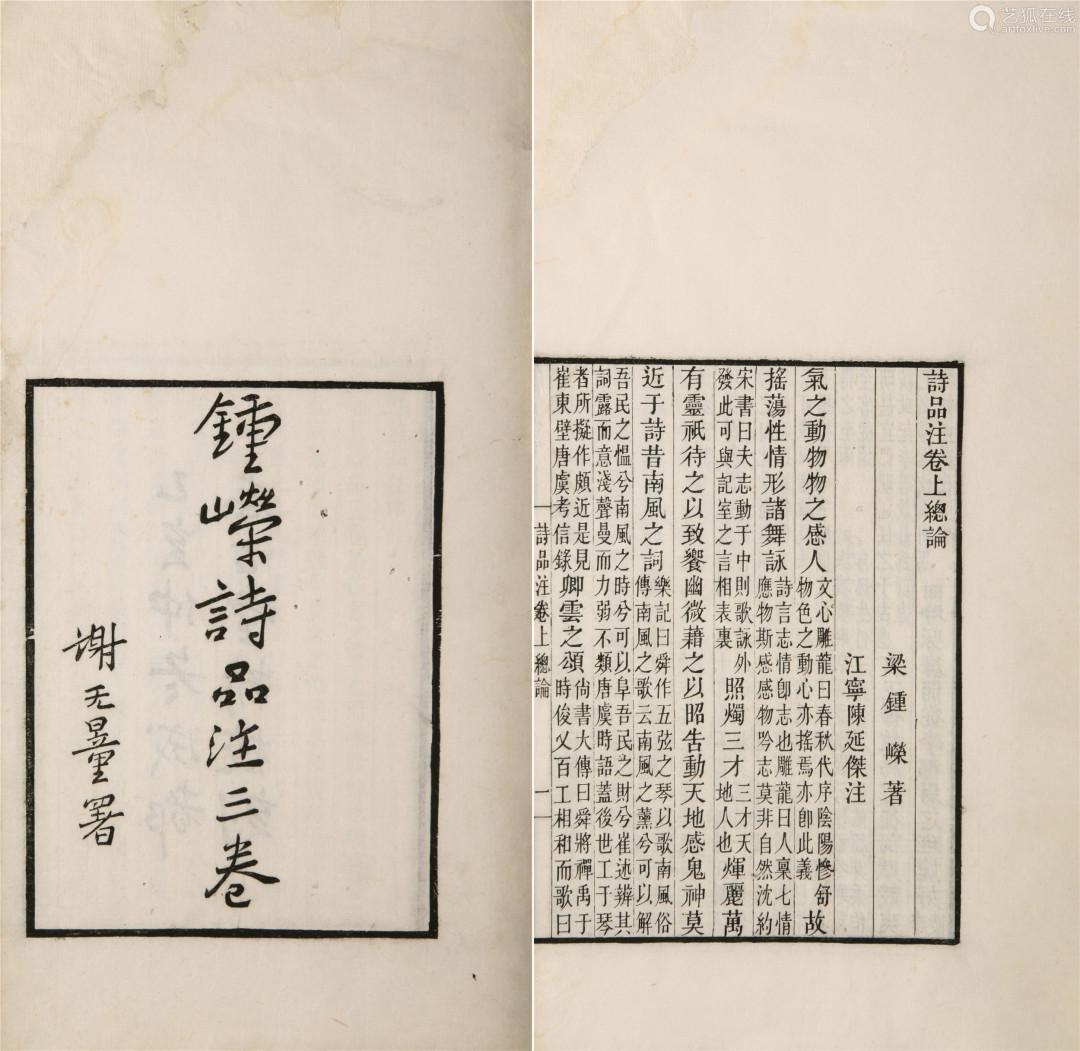 鍾嶸詩品注三卷
謝无量署
艺狐在线
artfoxlive.com
詩品注卷上總論
梁鍾嶸著
江寧陳延傑注
氣之動物物之感人文心雕龍曰春秋代序陰陽慘舒物色之動心亦搖焉亦卽此義故
搖蕩性情形諸舞詠詩言志情卽志也雕龍曰人稟七情應物斯感感物吟志莫非自然沈約
宋書曰夫志動于中則歌詠外發此可與記室之言相表裏照燭三才三才天地人也煇麗萬
有靈祇待之以致饗幽微藉之以昭吿動天地感鬼神莫
近于詩昔南風之詞樂記曰舜作五弦之琴以歌南風俗傳南風之歌云南風之薰兮可以解
吾民之慍兮南風之時兮可以阜吾民之財兮崔述辨其詞露而意淺聲曼而力弱不類唐虞時語蓋後世工于琴
者所擬作頗近是見崔東壁唐虞考信錄卿雲之頌尙書大傳曰舜將禪禹于時俊乂百工相和而歌曰
詩品注卷上總論
一